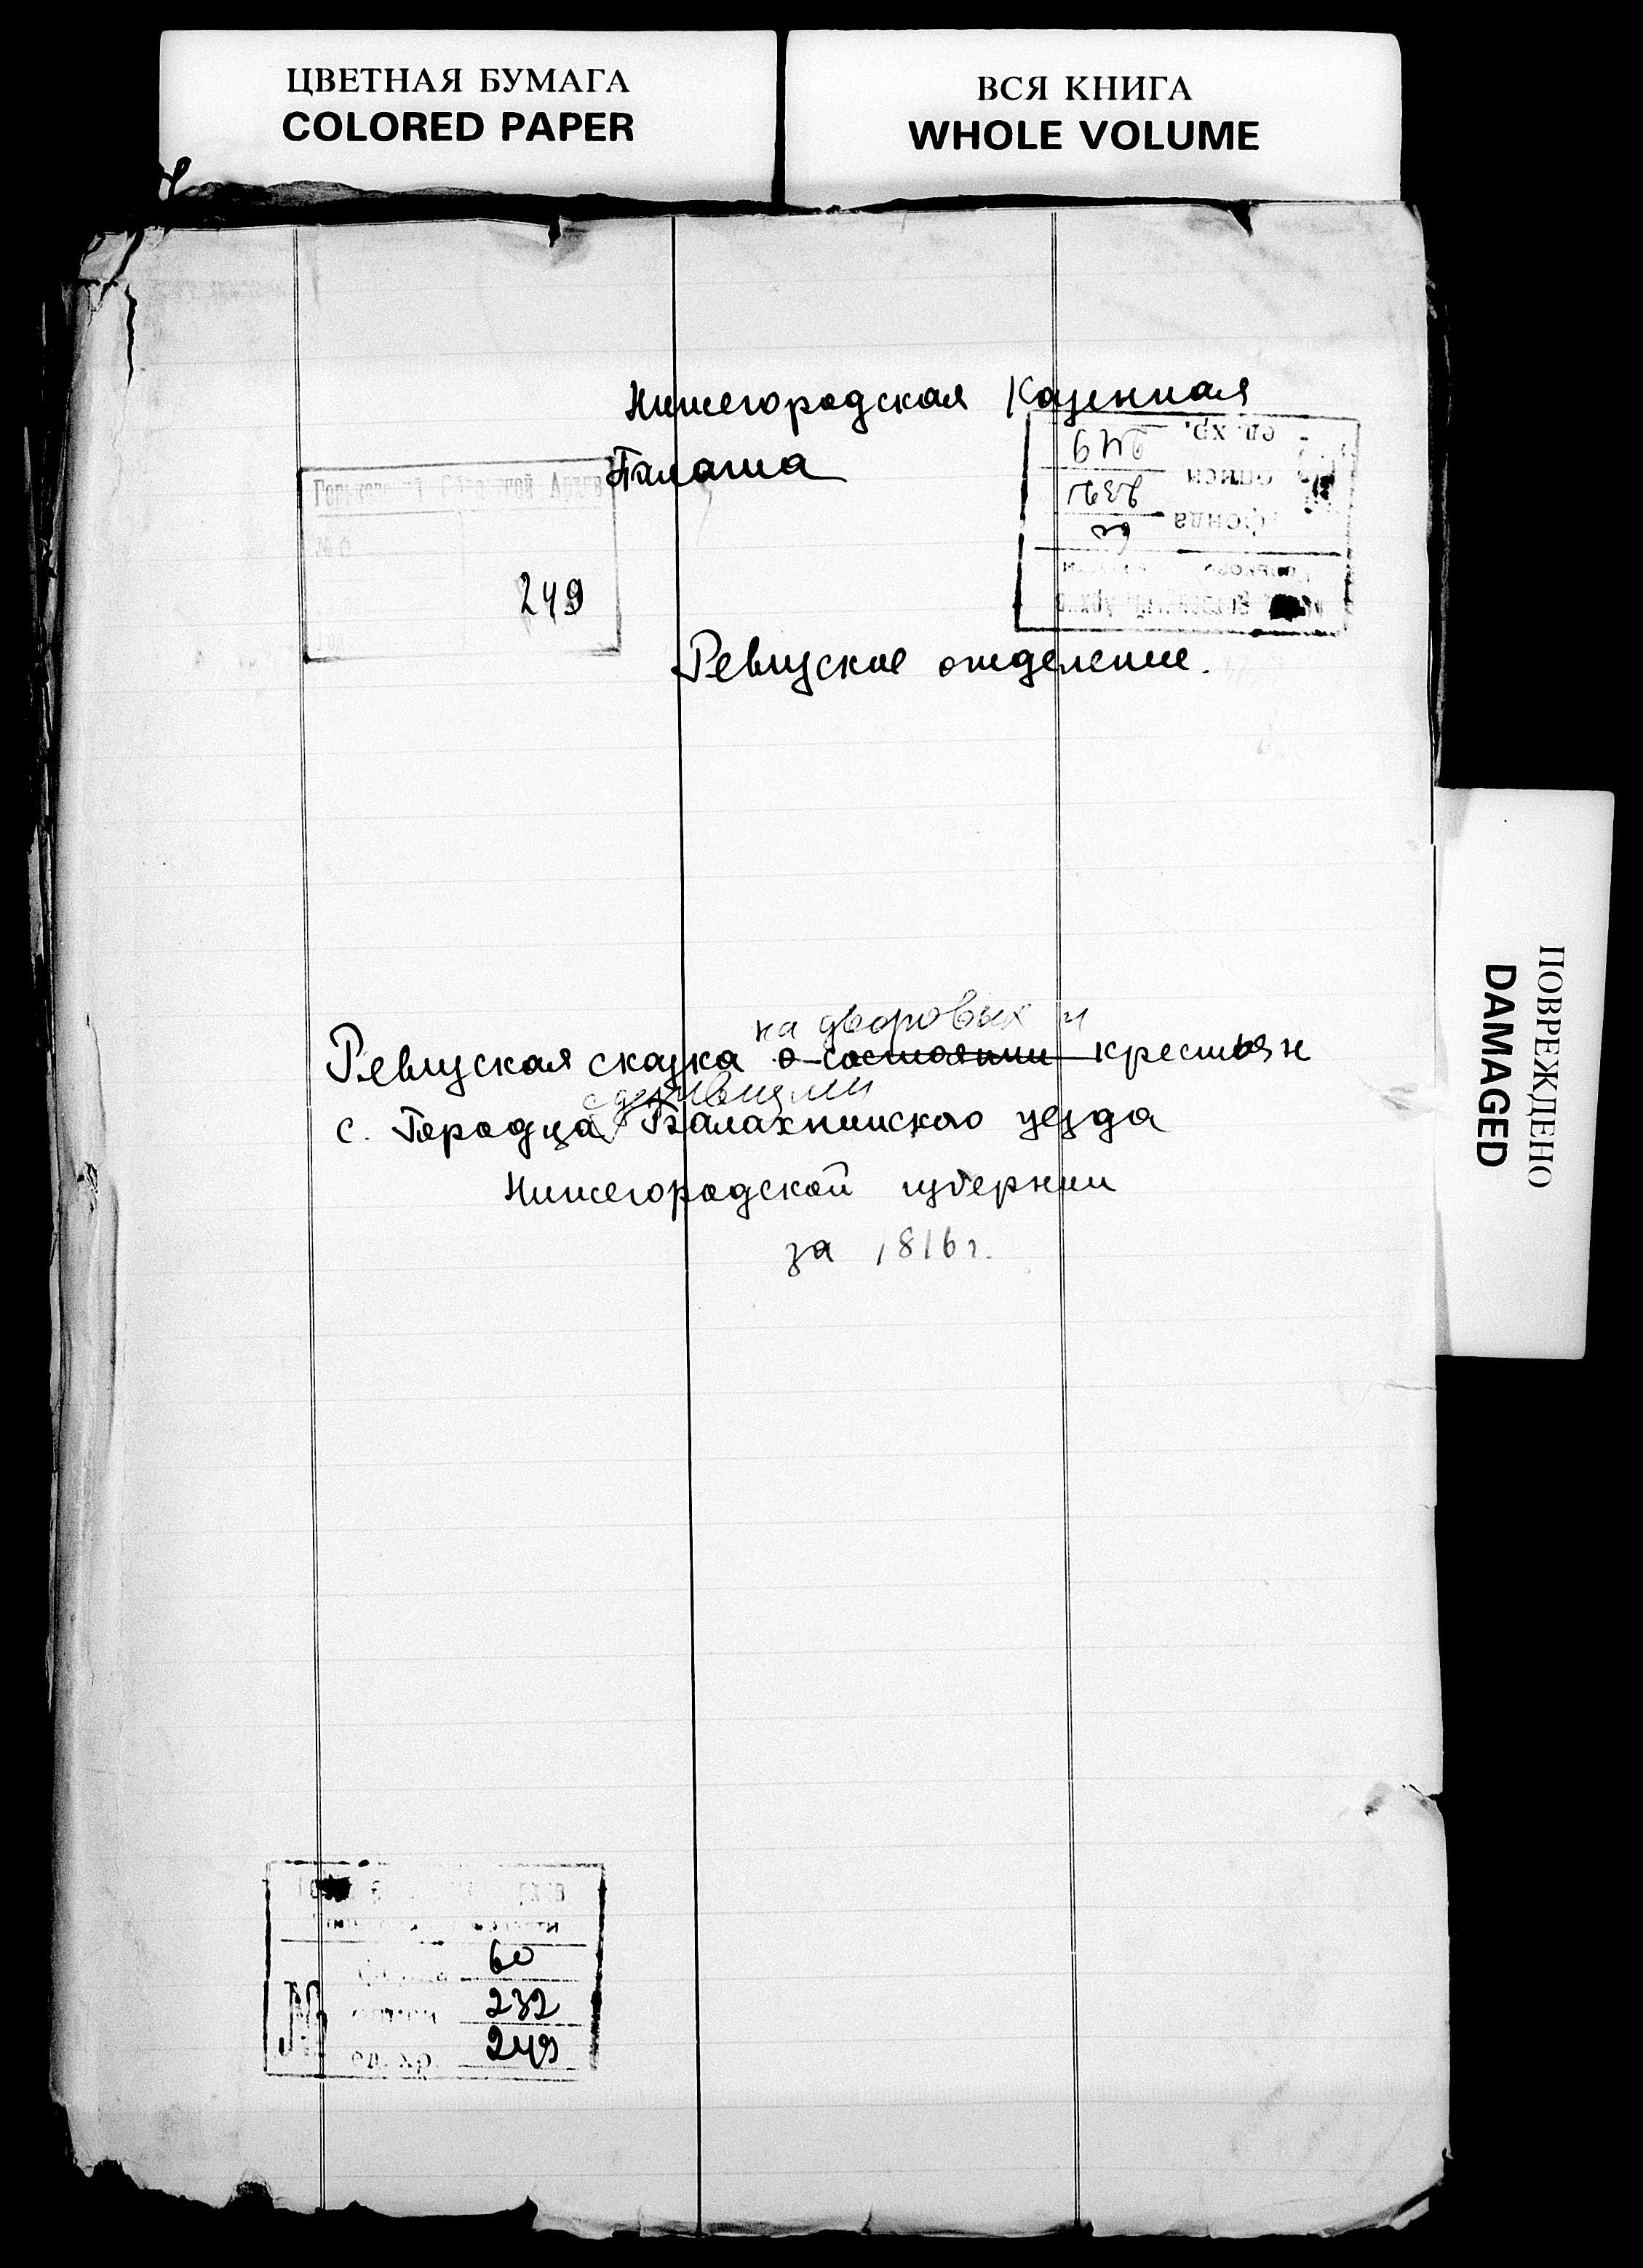 ЦВЕТНАЯ БУМАГА
COLORED PAPER
ВСЯ КНИГА
WHOLE VOLUME
Нижегородская Казенная
Палата
ед. хр. 249
описи 232
фонда 60
Горьковский Областной Архив
№ ф
249
Ревизское отделение.
ПОВРЕЖДЕНО
DAMAGED
на дворовых и
Ревизская сказка о состоянии крестьян
с деревнями
с. Городца Балахнинского уезда
Нижегородской губернии
за 1816 г.
№
фонда 60
описи 232
ед. хр. 249